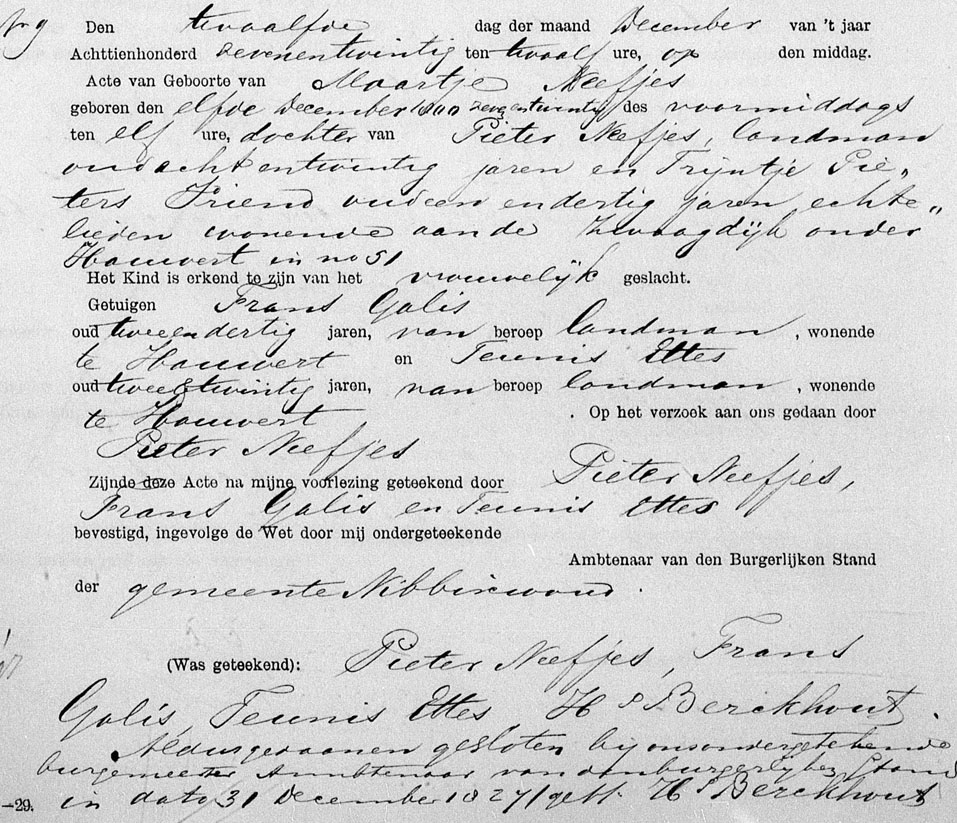 No 9 Den twaalfde dag der maand December van 't jaar
Achttienhonderd zevenentwintig ten twaalf ure, op den middag.
Acte van Geboorte van Maartje Neefjes
geboren den elfde December 1800 zevenentwintig des voormiddags
ten elf ure, dochter van Pieter Neefjes, landman
oud acht entwintig jaren en Trijntje Pie„
ters Vriend oud een endertig jaren echte„
lieden wonende aan de Zwaagdijk onder
Hauwert in no 51
Het Kind is erkend te zijn van het vrouwelijk geslacht.
Getuigen Frans Galis
oud tweeendertig jaren, van beroep landman, wonende
te Hauwert en Teunis Ettes
oud tweeëtwintig jaren, van beroep landman, wonende
te Hauwert . Op het verzoek aan ons gedaan door
Pieter Neefjes
Zijnde deze Acte na mijne voorlezing geteekend door Pieter Neefjes,
Frans Galis en Teunis Ettes
bevestigd, ingevolge de Wet door mij ondergeteekende
Ambtenaar van den Burgerlijken Stand
der gemeente Nibbixwoud.
(Was geteekend): Pieter Neefjes, Frans
Galis, Teunis Ettes, H s Berckhout.
Aldus gedaan en gesloten bij ons ondergetekende
burgemeester Ambtenaar van den burgerlijken Stand
–29. in dato 31 December 1827 /get. H s Berckhout